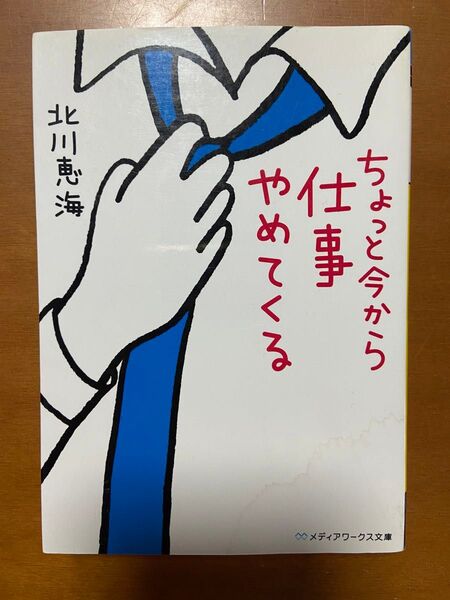 ちょっと今から
仕事
やめてくる
北川恵海
メディアワークス文庫